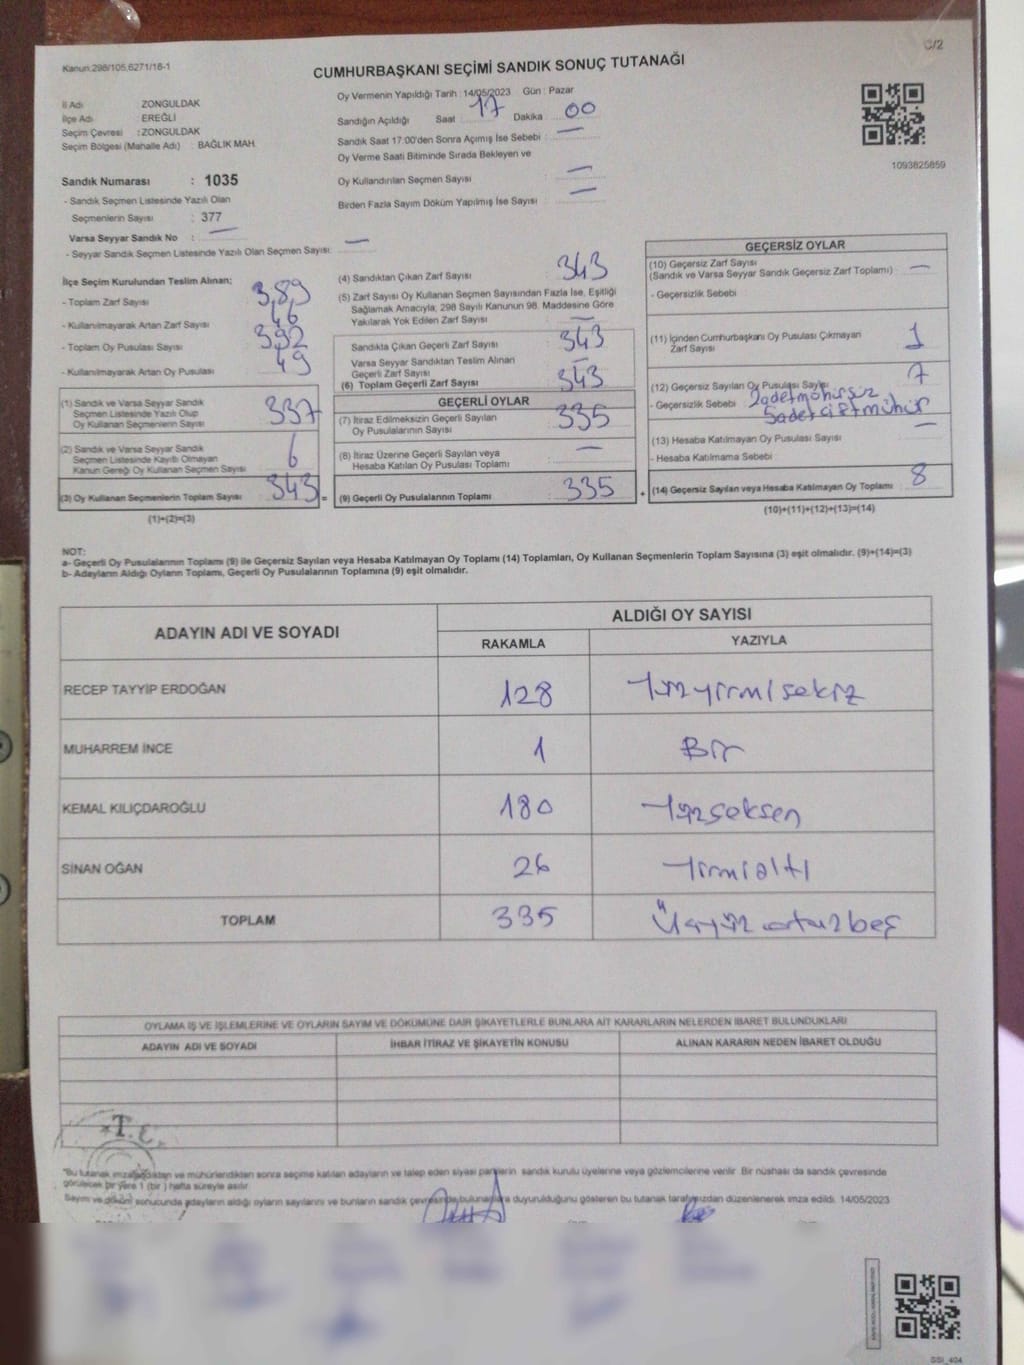 Kanun:298/105,6271/18-1
C/2
CUMHURBAŞKANI SEÇİMİ SANDIK SONUÇ TUTANAĞI
İl Adı ZONGULDAK
İlçe Adı EREĞLİ
Seçim Çevresi : ZONGULDAK
Seçim Bölgesi (Mahalle Adı) : BAĞLIK MAH.
Sandık Numarası : 1035
- Sandık Seçmen Listesinde Yazılı Olan
Seçmenlerin Sayısı : 377
Varsa Seyyar Sandık No : —
- Seyyar Sandık Seçmen Listesinde Yazılı Olan Seçmen Sayısı: —
Oy Vermenin Yapıldığı Tarih : 14/05/2023 Gün : Pazar
Sandığın Açıldığı Saat 17 Dakika 00
Sandık Saat 17:00'den Sonra Açımış İse Sebebi : —
Oy Verme Saati Bitiminde Sırada Bekleyen ve
Oy Kullandırılan Seçmen Sayısı : —
Birden Fazla Sayım Döküm Yapılmış İse Sayısı : —
1093825859
İlçe Seçim Kurulundan Teslim Alınan:
- Toplam Zarf Sayısı 389
- Kullanılmayarak Artan Zarf Sayısı 46
- Toplam Oy Pusulası Sayısı 392
- Kullanılmayarak Artan Oy Pusulası 49
(1) Sandık ve Varsa Seyyar Sandık
Seçmen Listesinde Yazılı Olup
Oy Kullanan Seçmenlerin Sayısı 337
(2) Sandık ve Varsa Seyyar Sandık
Seçmen Listesinde Kayıtlı Olmayan
Kanun Gereği Oy Kullanan Seçmen Sayısı 6
(3) Oy Kullanan Seçmenlerin Toplam Sayısı 343 =
(1)+(2)=(3)
(4) Sandıktan Çıkan Zarf Sayısı 343
(5) Zarf Sayısı Oy Kullanan Seçmen Sayısından Fazla İse, Eşitliği
Sağlamak Amacıyla, 298 Sayılı Kanunun 98. Maddesine Göre
Yakılarak Yok Edilen Zarf Sayısı —
Sandıkta Çıkan Geçerli Zarf Sayısı 343
Varsa Seyyar Sandıktan Teslim Alınan
Geçerli Zarf Sayısı —
(6) Toplam Geçerli Zarf Sayısı 343
GEÇERLİ OYLAR
(7) İtiraz Edilmeksizin Geçerli Sayılan
Oy Pusulalarının Sayısı 335
(8) İtiraz Üzerine Geçerli Sayılan veya
Hesaba Katılan Oy Pusulası Toplamı —
(9) Geçerli Oy Pusulalarının Toplamı 335 +
GEÇERSİZ OYLAR
(10) Geçersiz Zarf Sayısı
(Sandık ve Varsa Seyyar Sandık Geçersiz Zarf Toplamı) —
- Geçersizlik Sebebi
(11) İçinden Cumhurbaşkanı Oy Pusulası Çıkmayan
Zarf Sayısı 1
(12) Geçersiz Sayılan Oy Pusulası Sayısı 7
- Geçersizlik Sebebi 2 adet mühürsüz
5 adet çift mühür
(13) Hesaba Katılmayan Oy Pusulası Sayısı —
- Hesaba Katılmama Sebebi
(14) Geçersiz Sayılan veya Hesaba Katılmayan Oy Toplamı 8
(10)+(11)+(12)+(13)=(14)
NOT:
a- Geçerli Oy Pusulalarının Toplamı (9) ile Geçersiz Sayılan veya Hesaba Katılmayan Oy Toplamı (14) Toplamları, Oy Kullanan Seçmenlerin Toplam Sayısına (3) eşit olmalıdır. (9)+(14)=(3)
b- Adayların Aldığı Oyların Toplamı, Geçerli Oy Pusulalarının Toplamına (9) eşit olmalıdır.
ADAYIN ADI VE SOYADI
ALDIĞI OY SAYISI
RAKAMLA YAZIYLA
RECEP TAYYİP ERDOĞAN 128 Yüzyirmisekiz
MUHARREM İNCE 1 Bir
KEMAL KILIÇDAROĞLU 180 Yüzseksen
SİNAN OĞAN 26 Yirmialtı
TOPLAM 335 Üçyüz otuzbeş
OYLAMA İŞ VE İŞLEMLERİNE VE OYLARIN SAYIM VE DÖKÜMÜNE DAİR ŞİKAYETLERLE BUNLARA AİT KARARLARIN NELERDEN İBARET BULUNDUKLARI
ADAYIN ADI VE SOYADI İHBAR İTİRAZ VE ŞİKAYETİN KONUSU ALINAN KARARIN NEDEN İBARET OLDUĞU
T.C.
"Bu tutanak imzalandıktan ve mühürlendikten sonra seçime katılan adayların ve talep eden siyasi partilerin sandık kurulu üyelerine veya gözlemcilerine verilir. Bir nüshası da sandık çevresinde
görülecek bir yere 1 (bir) hafta süreyle asılır.
Sayım ve döküm sonucunda adayların aldığı oyların sayılarını ve bunların sandık çevresinde bulunanlara duyurulduğunu gösteren bu tutanak tarafımızdan düzenlenerek imza edildi. 14/05/2023
SSİ_404